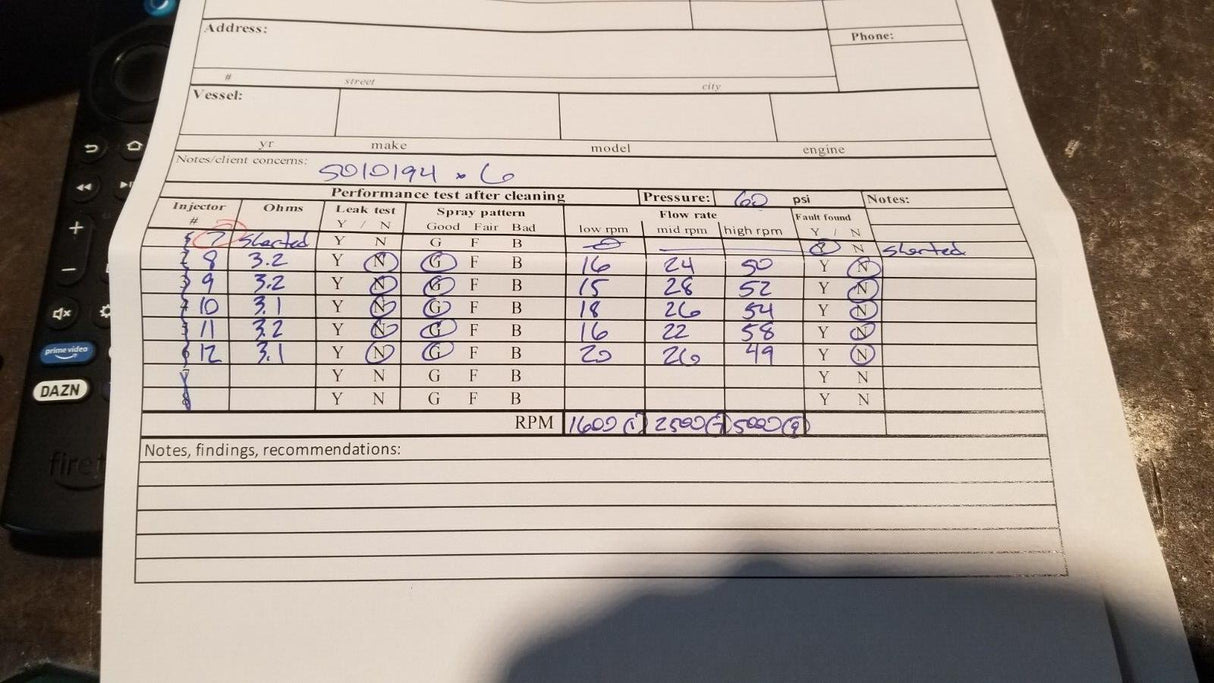 Address:
Phone:
# street city
Vessel:
yr make model engine
Notes/client concerns: 5010194 x 6
Performance test after cleaning Pressure: 60 psi Notes:
Injector # Ohms Leak test Y / N Spray pattern Good Fair Bad Flow rate low rpm mid rpm high rpm Fault found Y / N
7 Shorted Y N G F B 0 Y N Shorted
8 3.2 Y N G F B 16 24 50 Y N
9 3.2 Y N G F B 15 28 52 Y N
10 3.1 Y N G F B 18 26 54 Y N
11 3.2 Y N G F B 16 22 58 Y N
12 3.1 Y N G F B 20 26 49 Y N
Y N G F B Y N
Y N G F B Y N
RPM 1600 2500 5000
Notes, findings, recommendations:
prime video
DAZN
fire